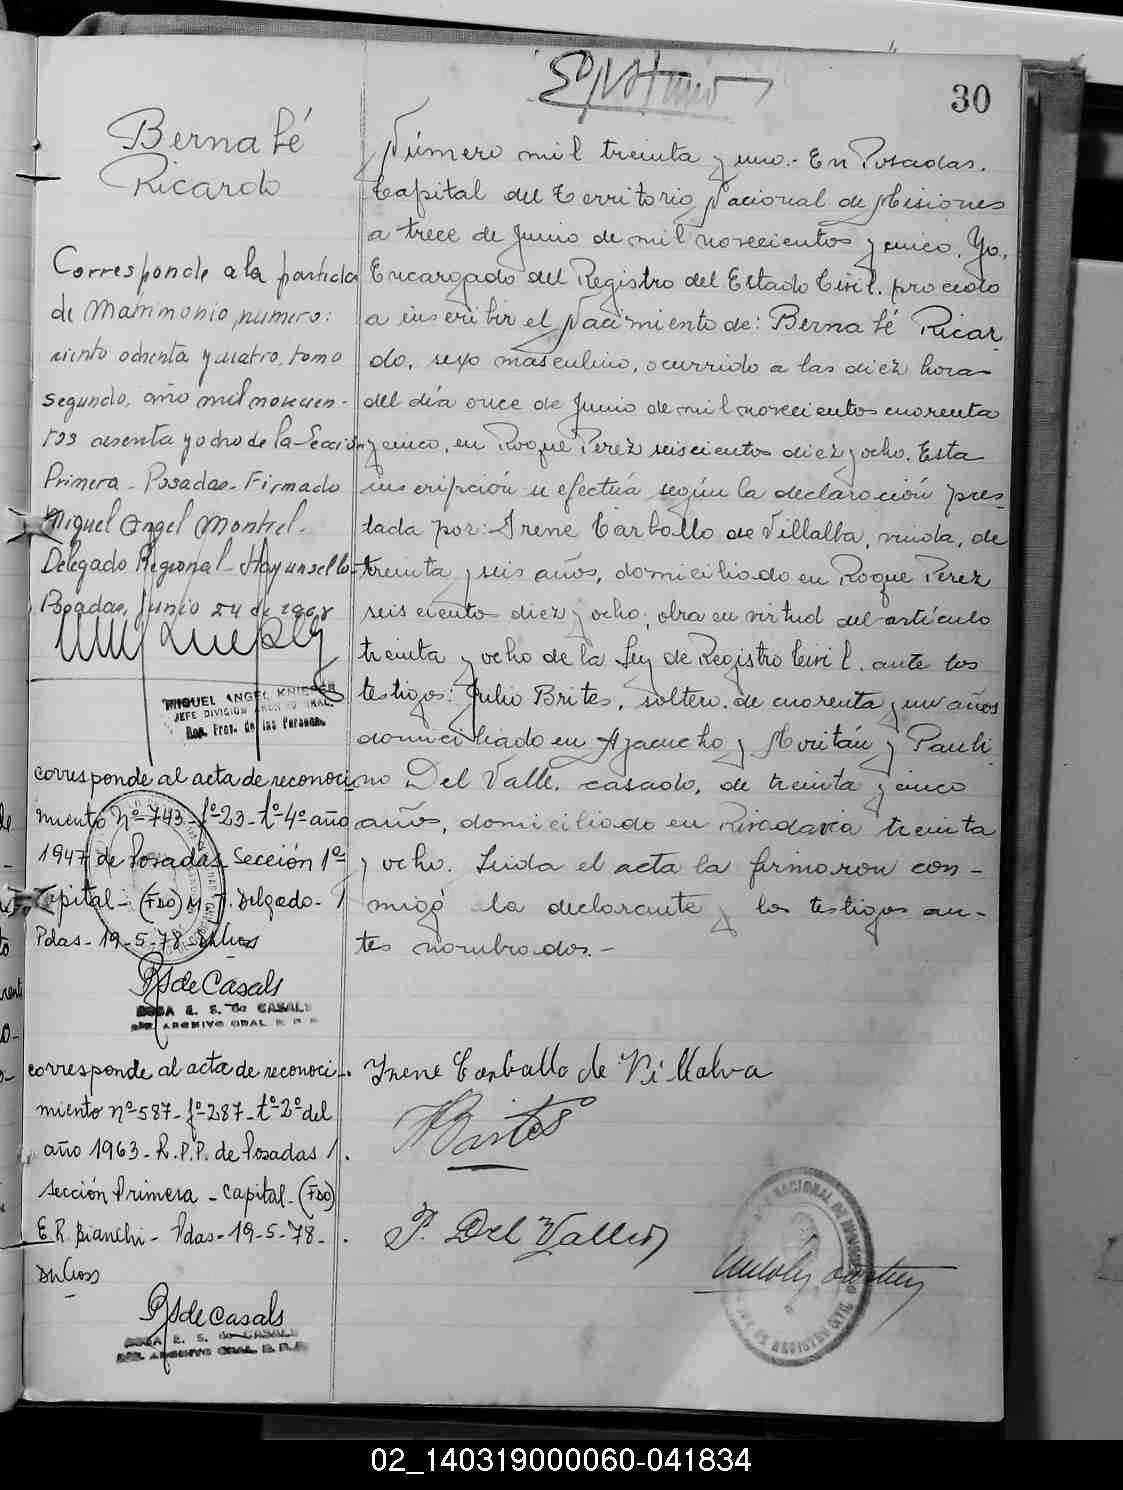 30
Bernabé
Ricardo
Número mil treinta y uno.- En Posadas.
Capital del Territorio Nacional de Misiones
a trece de Junio de mil novecientos y cinco. Yo,
Encargado del Registro del Estado Civil. procedo
a inscribir el Nacimiento de: Bernabé Ricar
do, sexo masculino, ocurrido a las diez horas
del día once de Junio de mil novecientos cuarenta
y cinco, en Roque Perez seiscientos diez y ocho. Esta
inscripción se efectúa según la declaración pres-
tada por: Irene Carballo de Villalba, viuda, de
treinta y seis años, domiciliado en Roque Perez
seiscientos diez y ocho; obra en virtud del artículo
treinta y ocho de la Ley de Registro Civil. ante los
testigos: Julio Brites, soltero, de cuarenta y un años
domiciliado en Ayacucho y Moritán y Pauli
no Del Valle, casado, de treinta y cinco
años, domiciliado en Rivadavia treinta
y ocho. Leida el acta la firmaron con-
migo la declarante y los testigos an-
tes nombrados.-
Irene Carballo de Villalva
Brites
P. Del Valle
Corresponde a la partida
de Matrimonio numero:
ciento ochenta y cuatro, tomo
segundo, año mil novecien-
tos sesenta y ocho de la Sección
Primera - Posadas - Firmado
Miguel Angel Montiel.
Delegado Regional -
Posadas, Junio 24 de 1968
MIGUEL ANGEL KNIEPER
JEFE DIVISION ARCHIVO GRAL.
Reg. Prov. de las Personas.
corresponde al acta de reconoci-
miento nº-743-fº-23-tº-4º año
1947 de Posadas - Sección 1º-
Capital - (FDO) M. J. Delgado - /
Pdas - 19-5-78.
RSde Casals
ROSA E. S. de CASALS
ARCHIVO GRAL. R. P. P.
corresponde al acta de reconoci-.
miento nº-587-fº-287-tº-2º del
año 1963 - R.P.P. de Posadas /.
Sección Primera - Capital - (FDO)
E. R. Bianchi - Pdas - 19-5-78-.
RSde Casals
ROSA E. S. de CASALS
ARCHIVO GRAL. R. P. P.
02_140319000060-041834